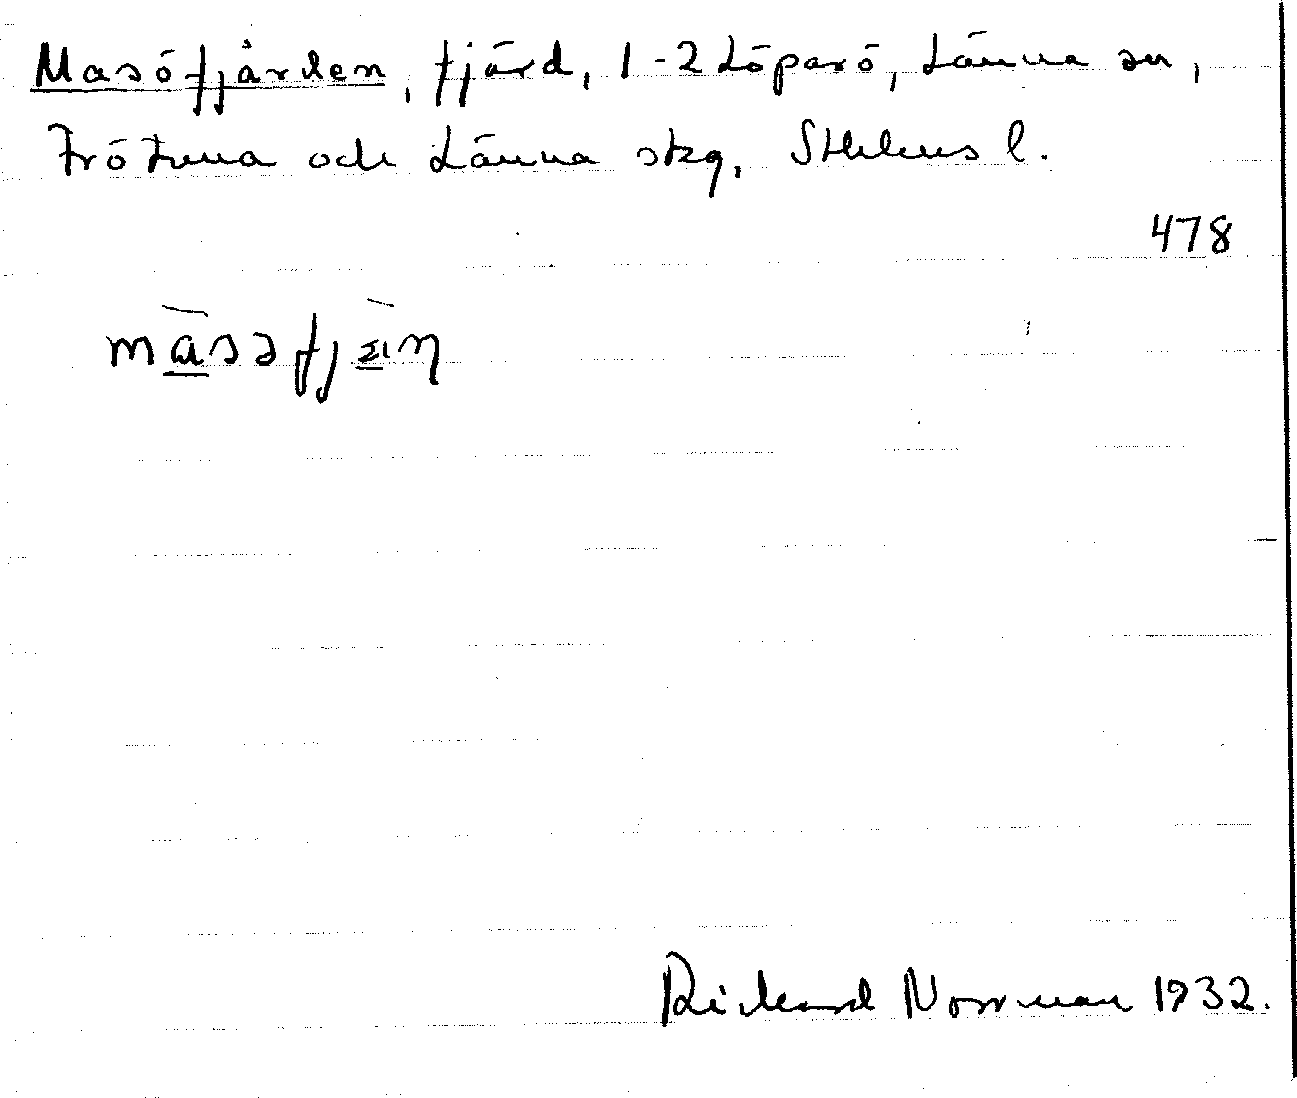 Masöfjärden, fjärd, 1-2 Löparö, Länna sn,
Frötuna och Länna skg, Sthlms l.
478
Rickard Norrman 1932.